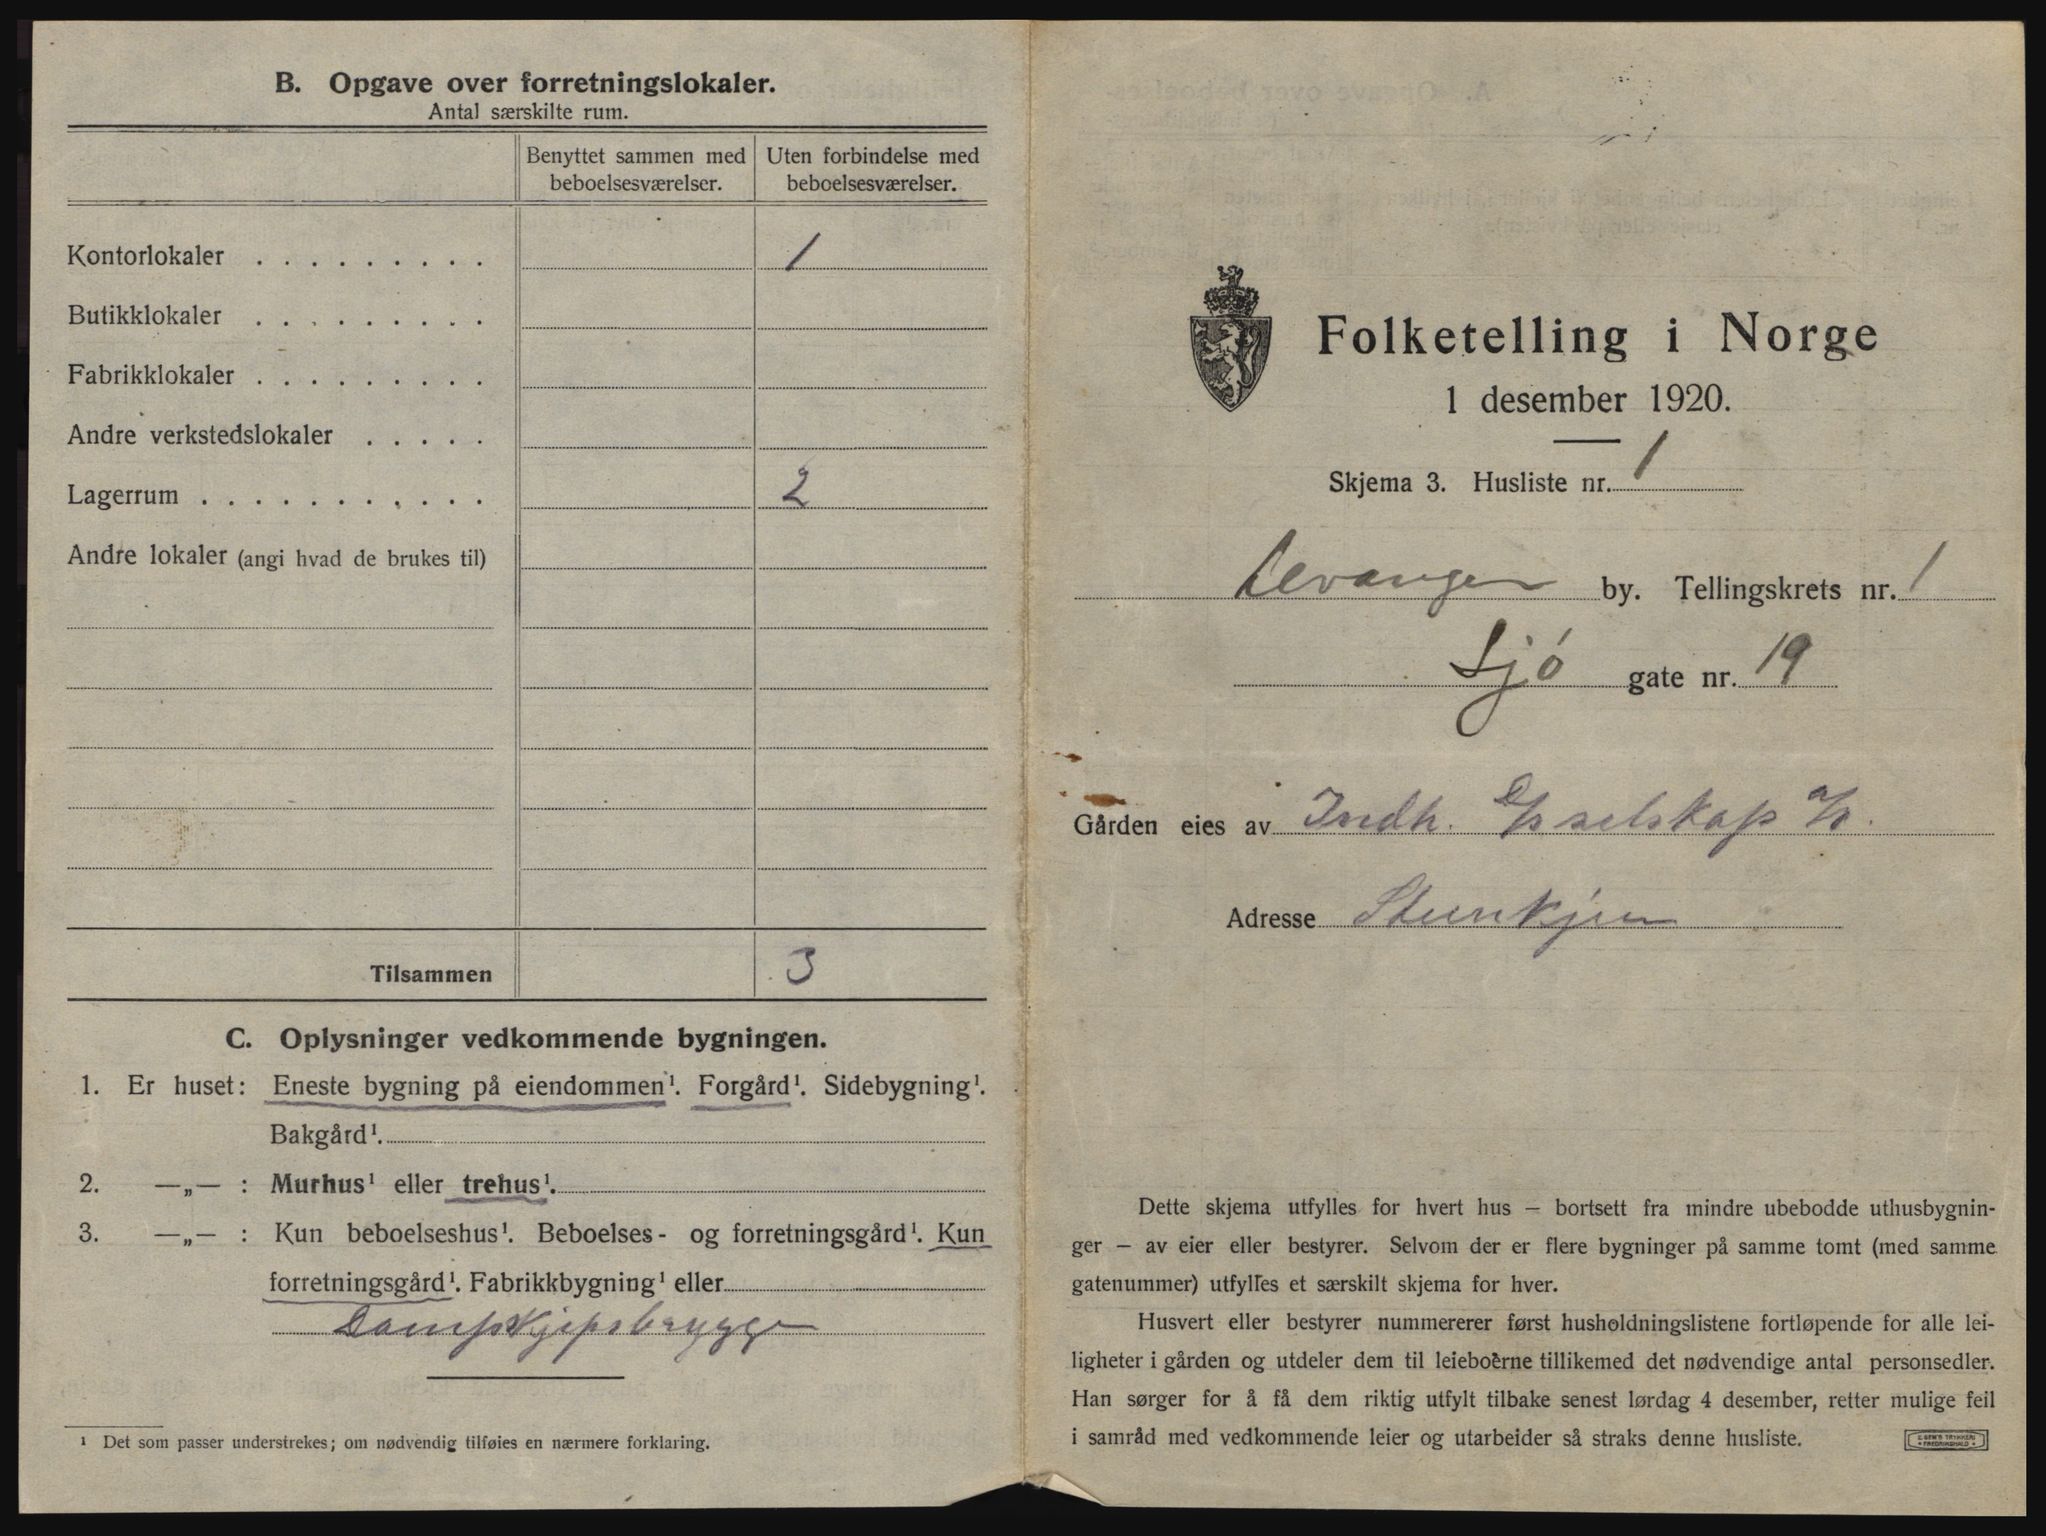 B. Opgave over forretningslokaler.
Antal særskilte rum.
Benyttet sammen med beboelsesværelser.
Uten forbindelse med beboelsesværelser.
Kontorlokaler . . . . . . . . . 1
Butikklokaler . . . . . . . . .
Fabrikklokaler . . . . . . . . .
Andre verkstedslokaler . . . . .
Lagerrum . . . . . . . . . . . 2
Andre lokaler (angi hvad de brukes til)
Tilsammen 3
C. Oplysninger vedkommende bygningen.
1. Er huset: Eneste bygning på eiendommen¹. Forgård¹. Sidebygning¹.
Bakgård¹.
2. —„— : Murhus¹ eller trehus¹.
3. —„— : Kun beboelseshus¹. Beboelses- og forretningsgård¹. Kun
forretningsgård¹. Fabrikkbygning¹ eller
Dampskipsbrygge
¹ Det som passer understrekes; om nødvendig tilføies en nærmere forklaring.
Folketelling i Norge
1 desember 1920.
Skjema 3. Husliste nr. 1
Levanger by. Tellingskrets nr. 1
Sjø gate nr. 19
Gården eies av Indh. D/sselskap a/s.
Adresse Steinkjer
Dette skjema utfylles for hvert hus – bortsett fra mindre ubebodde uthusbygnin-
ger – av eier eller bestyrer. Selvom der er flere bygninger på samme tomt (med samme
gatenummer) utfylles et særskilt skjema for hver.
Husvert eller bestyrer nummererer først husholdningslistene fortløpende for alle lei-
ligheter i gården og utdeler dem til leieboerne tillikemed det nødvendige antal personsedler.
Han sørger for å få dem riktig utfylt tilbake senest lørdag 4 desember, retter mulige feil
i samråd med vedkommende leier og utarbeider så straks denne husliste.